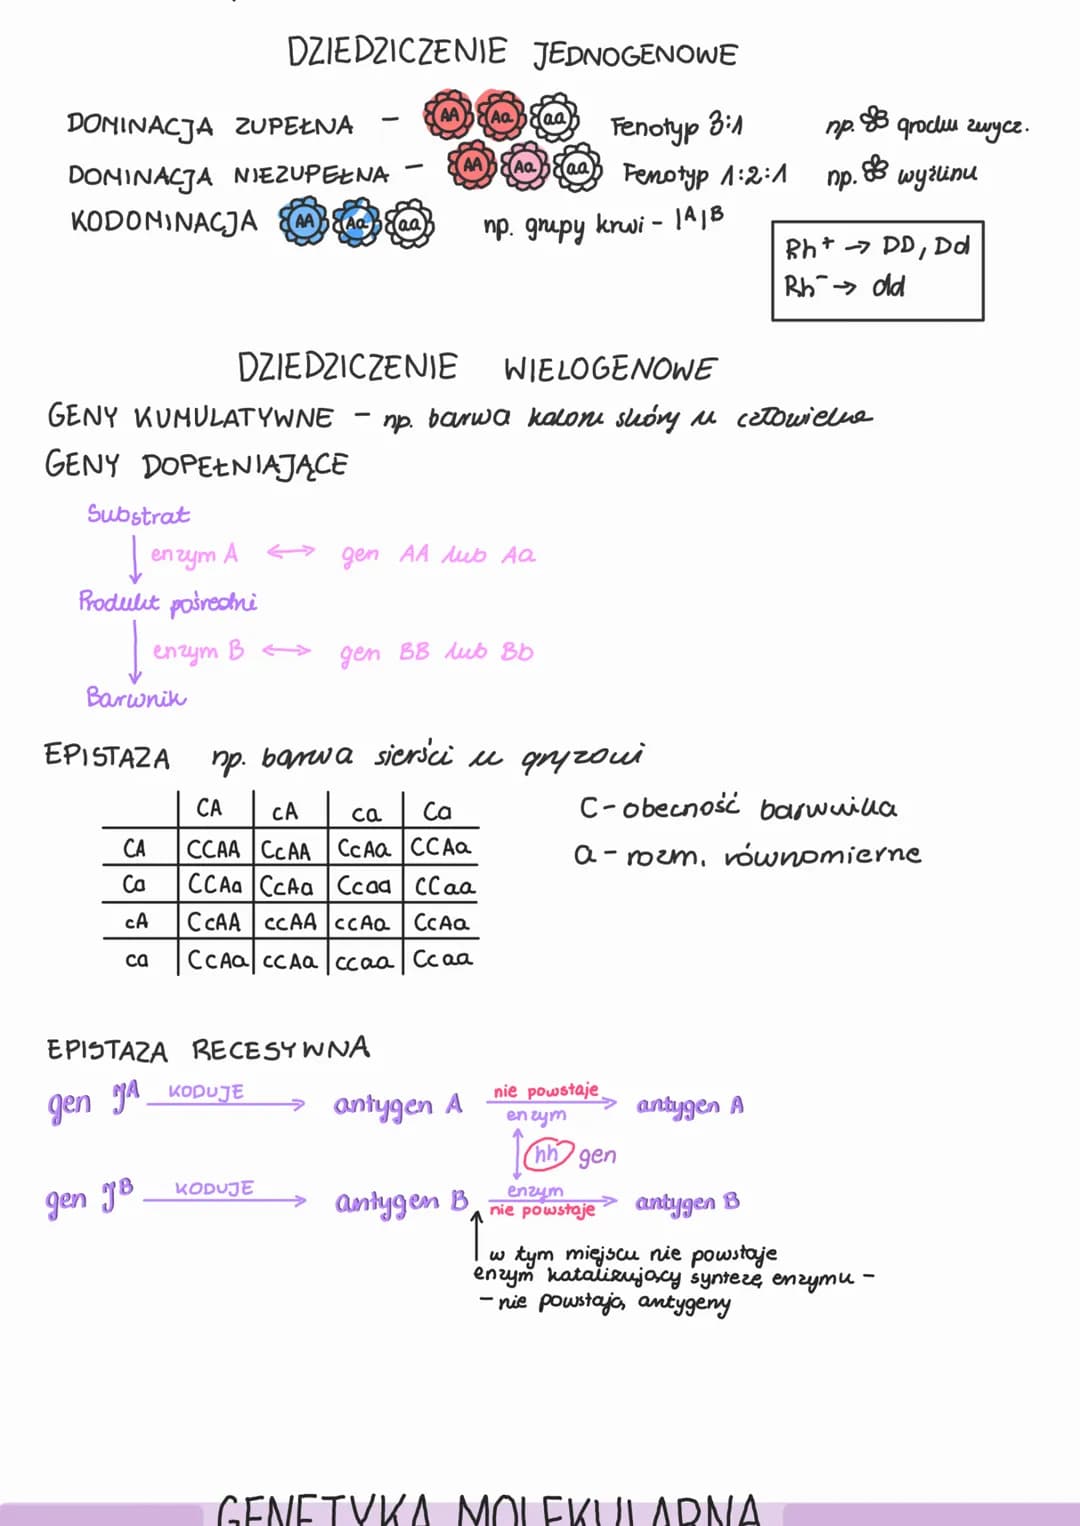 DZIEDZICZENIE JEDNOGENOWE
DOMINACJA ZUPEŁNA - AA Aa aa Fenotyp 3:1 np. grochu zwycz.
DOMINACJA NIEZUPEŁNA - AA Aa aa Fenotyp 1:2:1 np. wyżlinu
KODOMINACJA AA Aa aa np. grupy krwi - IᴬIᴮ
Rh⁺ → DD, Dd
Rh⁻ → dd
DZIEDZICZENIE WIELOGENOWE
GENY KUMULATYWNE - np. barwa koloru skóry u człowieka
GENY DOPEŁNIAJĄCE
Substrat
enzym A ↔ gen AA lub Aa
Produkt pośredni
enzym B ↔ gen BB lub Bb
Barwnik
EPISTAZA np. barwa sierści u gryzoni
CA cA ca Ca
CA CCAA CcAA CcAa CCAa
Ca CCAa CcAa Ccaa CCaa
cA CcAA ccAA ccAa CcAa
ca CcAa ccAa ccaa Ccaa
C - obecność barwnika
a - rozm. równomierne
EPISTAZA RECESYWNA
gen Iᴬ KODUJE → antygen A nie powstaje enzym → antygen A
hh gen
gen Iᴮ KODUJE → antygen B enzym nie powstaje → antygen B
w tym miejscu nie powstaje
enzym katalizujący syntezę enzymu -
- nie powstają antygeny
GENETYKA MOLEKULARNA